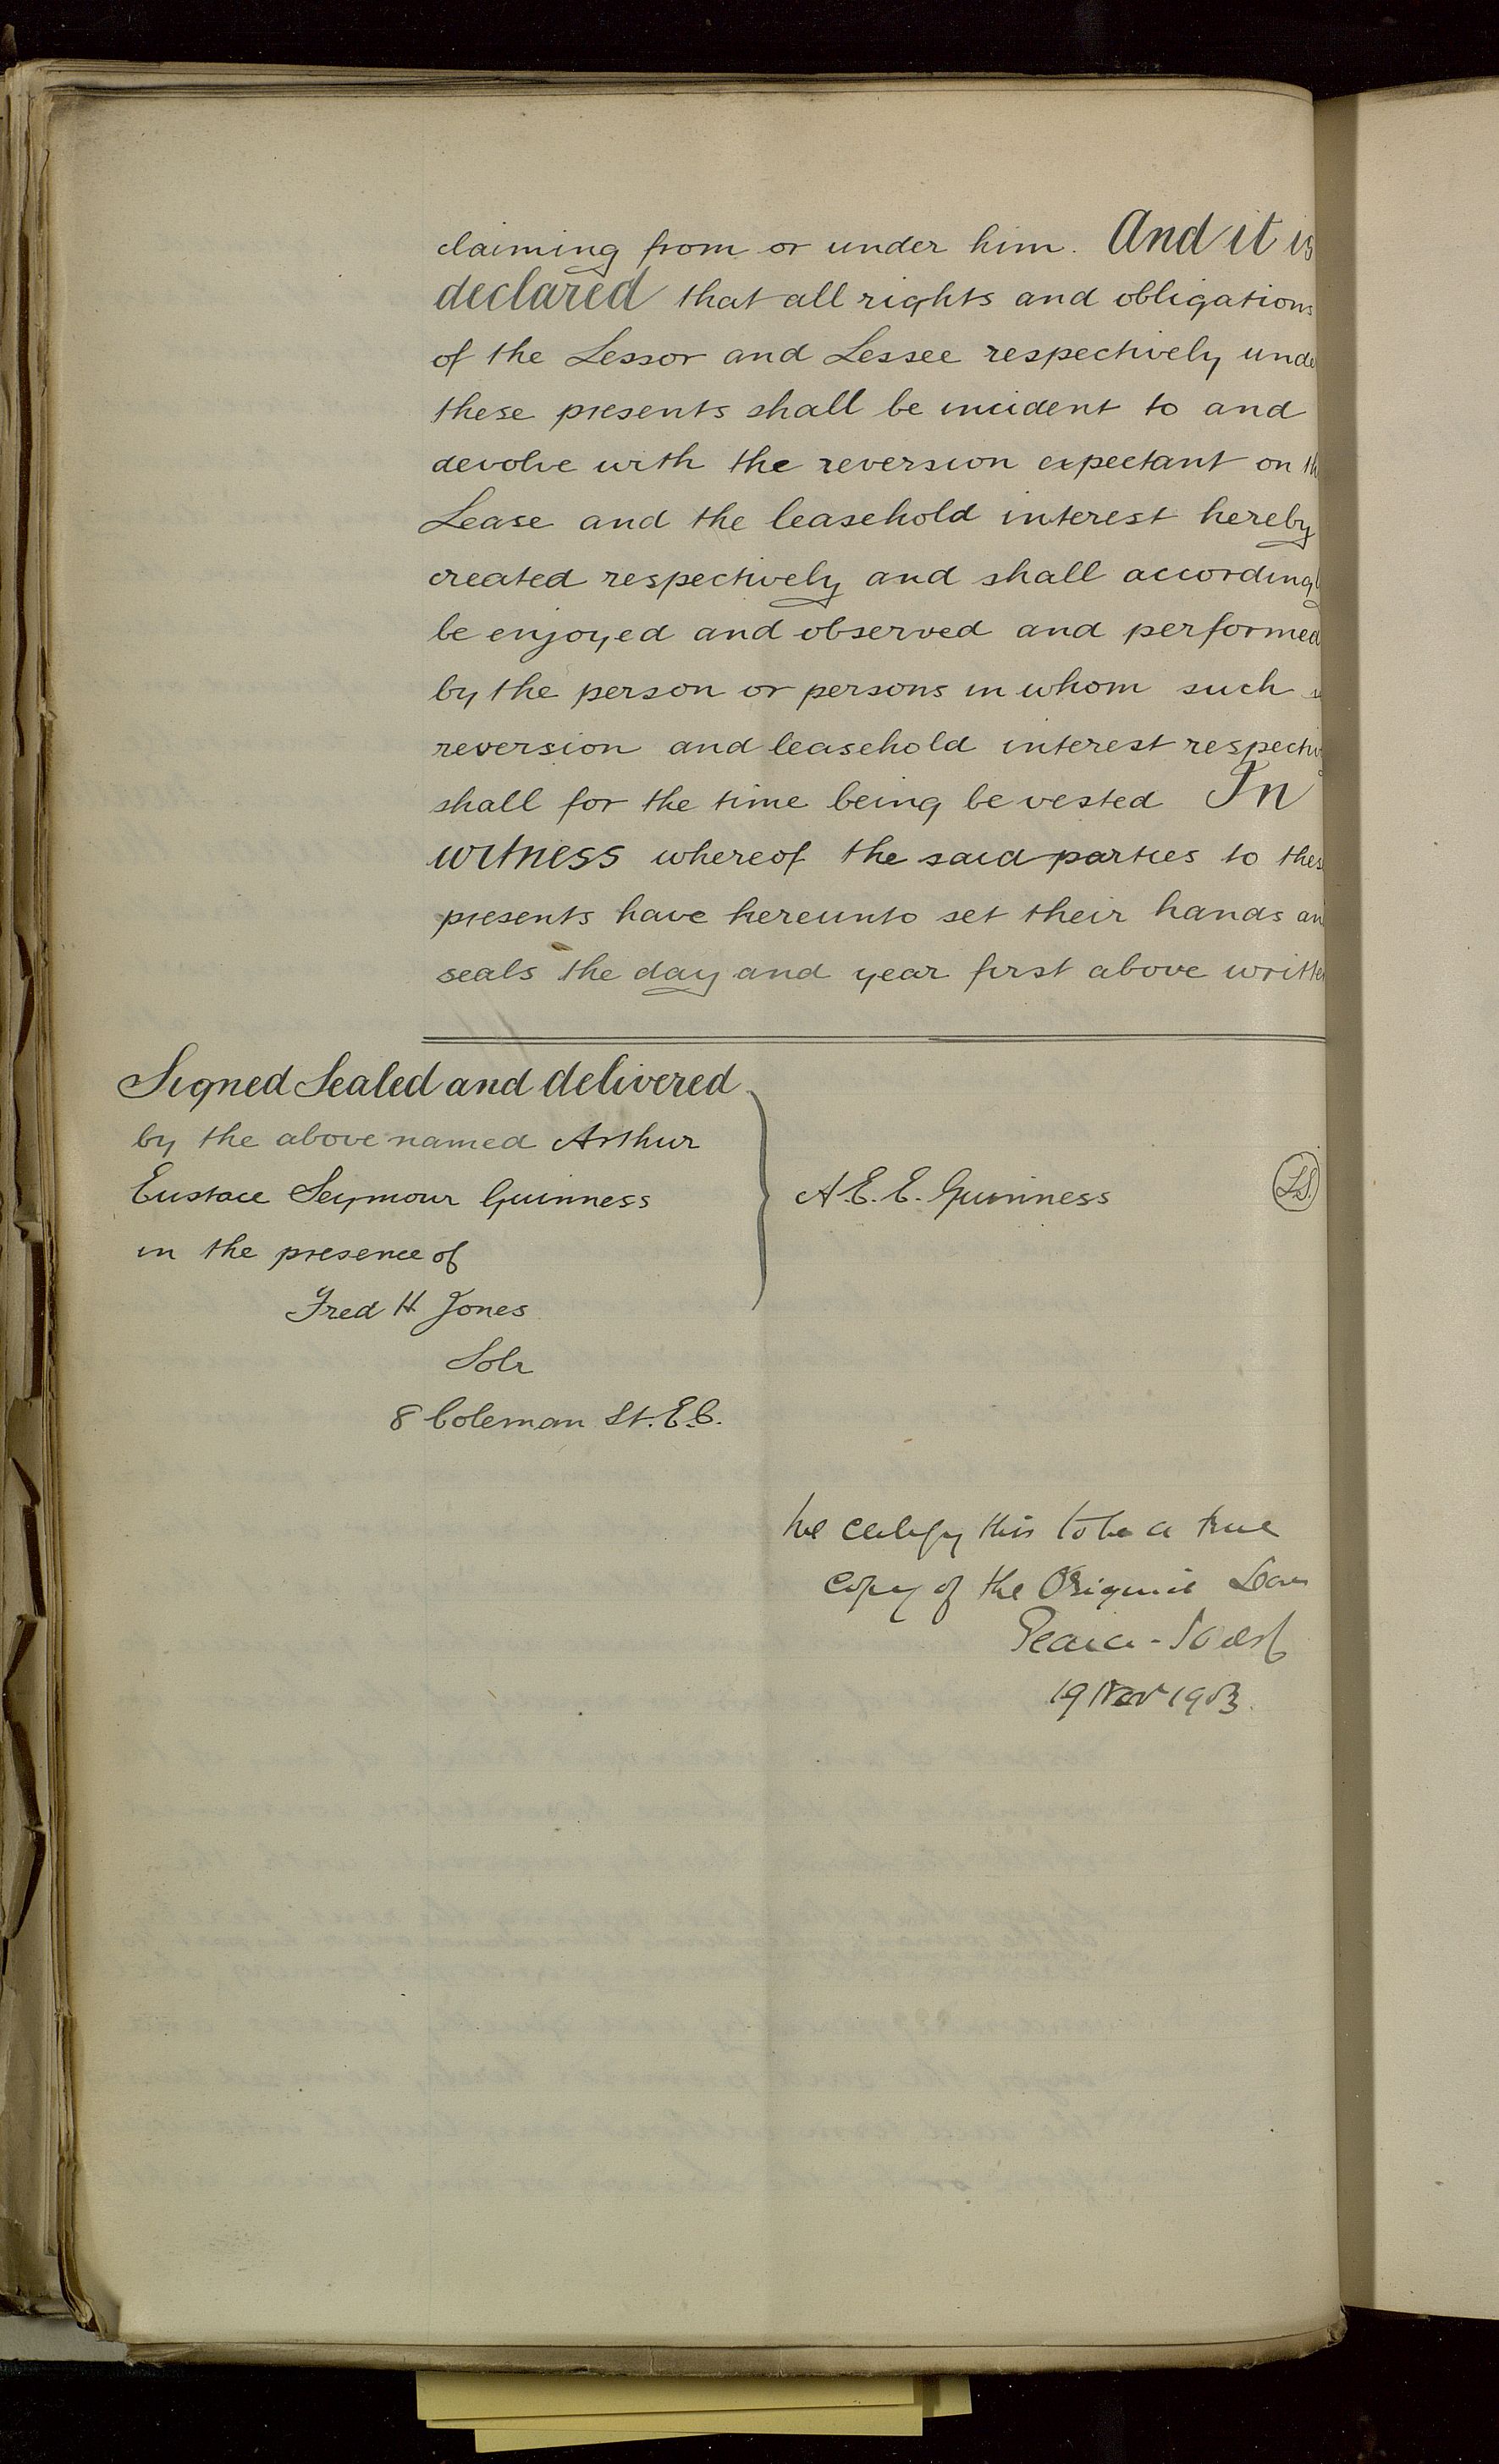 claiming from or under him. And it is
declared that all rights and obligations
of the Lessor and Lessee respectively unde
these presents shall be incident to and
devolve with the reversion expectant on th
Lease and the leasehold interest hereby
created respectively and shall accordingl
be enjoyed and observed and performed
by the person or persons in whom such
reversion and leasehold interest respectiv
shall for the time being be vested In
witness whereof the said parties to thes
presents have hereunto set their hands an
seals the day and year first above writte
Signed Sealed and delivered
by the above named Arthur
Eustace Seymour Guinness
in the presence of
Fred H Jones
Solr
8 Coleman St. E.C.
A. E. E. Guinness
L.S.
We certify this to be a true
copy of the Original
19 Nov 1903.